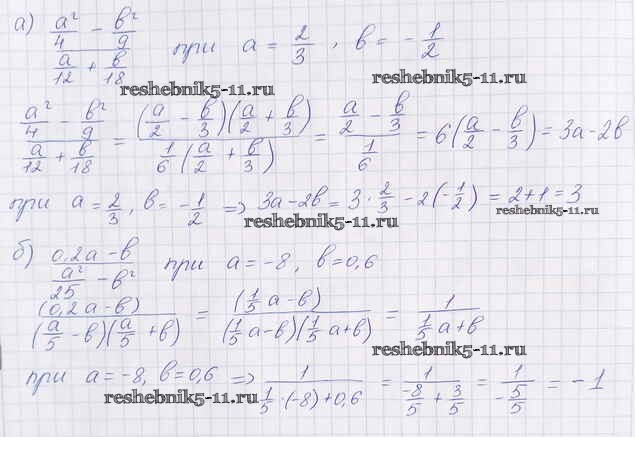 а) (a²/4 − b²/9)/(a/12 + b/18) при a = 2/3, b = −1/2
reshebnik5-11.ru reshebnik5-11.ru
(a²/4 − b²/9)/(a/12 + b/18) = ((a/2 − b/3)(a/2 + b/3))/(1/6 (a/2 + b/3)) = (a/2 − b/3)/(1/6) = 6(a/2 − b/3) = 3a − 2b
при a = 2/3, b = −1/2 => 3a − 2b = 3 · 2/3 − 2(−1/2) = 2 + 1 = 3
reshebnik5-11.ru reshebnik5-11.ru
б) (0,2a − b)/(a²/25 − b²) при a = −8, b = 0,6
(0,2a − b)/((a/5 − b)(a/5 + b)) = (1/5 a − b)/((1/5 a − b)(1/5 a + b)) = 1/(1/5 a + b)
reshebnik5-11.ru
при a = −8, b = 0,6 => 1/(1/5 · (−8) + 0,6) = 1/(−8/5 + 3/5) = 1/(−5/5) = −1
reshebnik5-11.ru